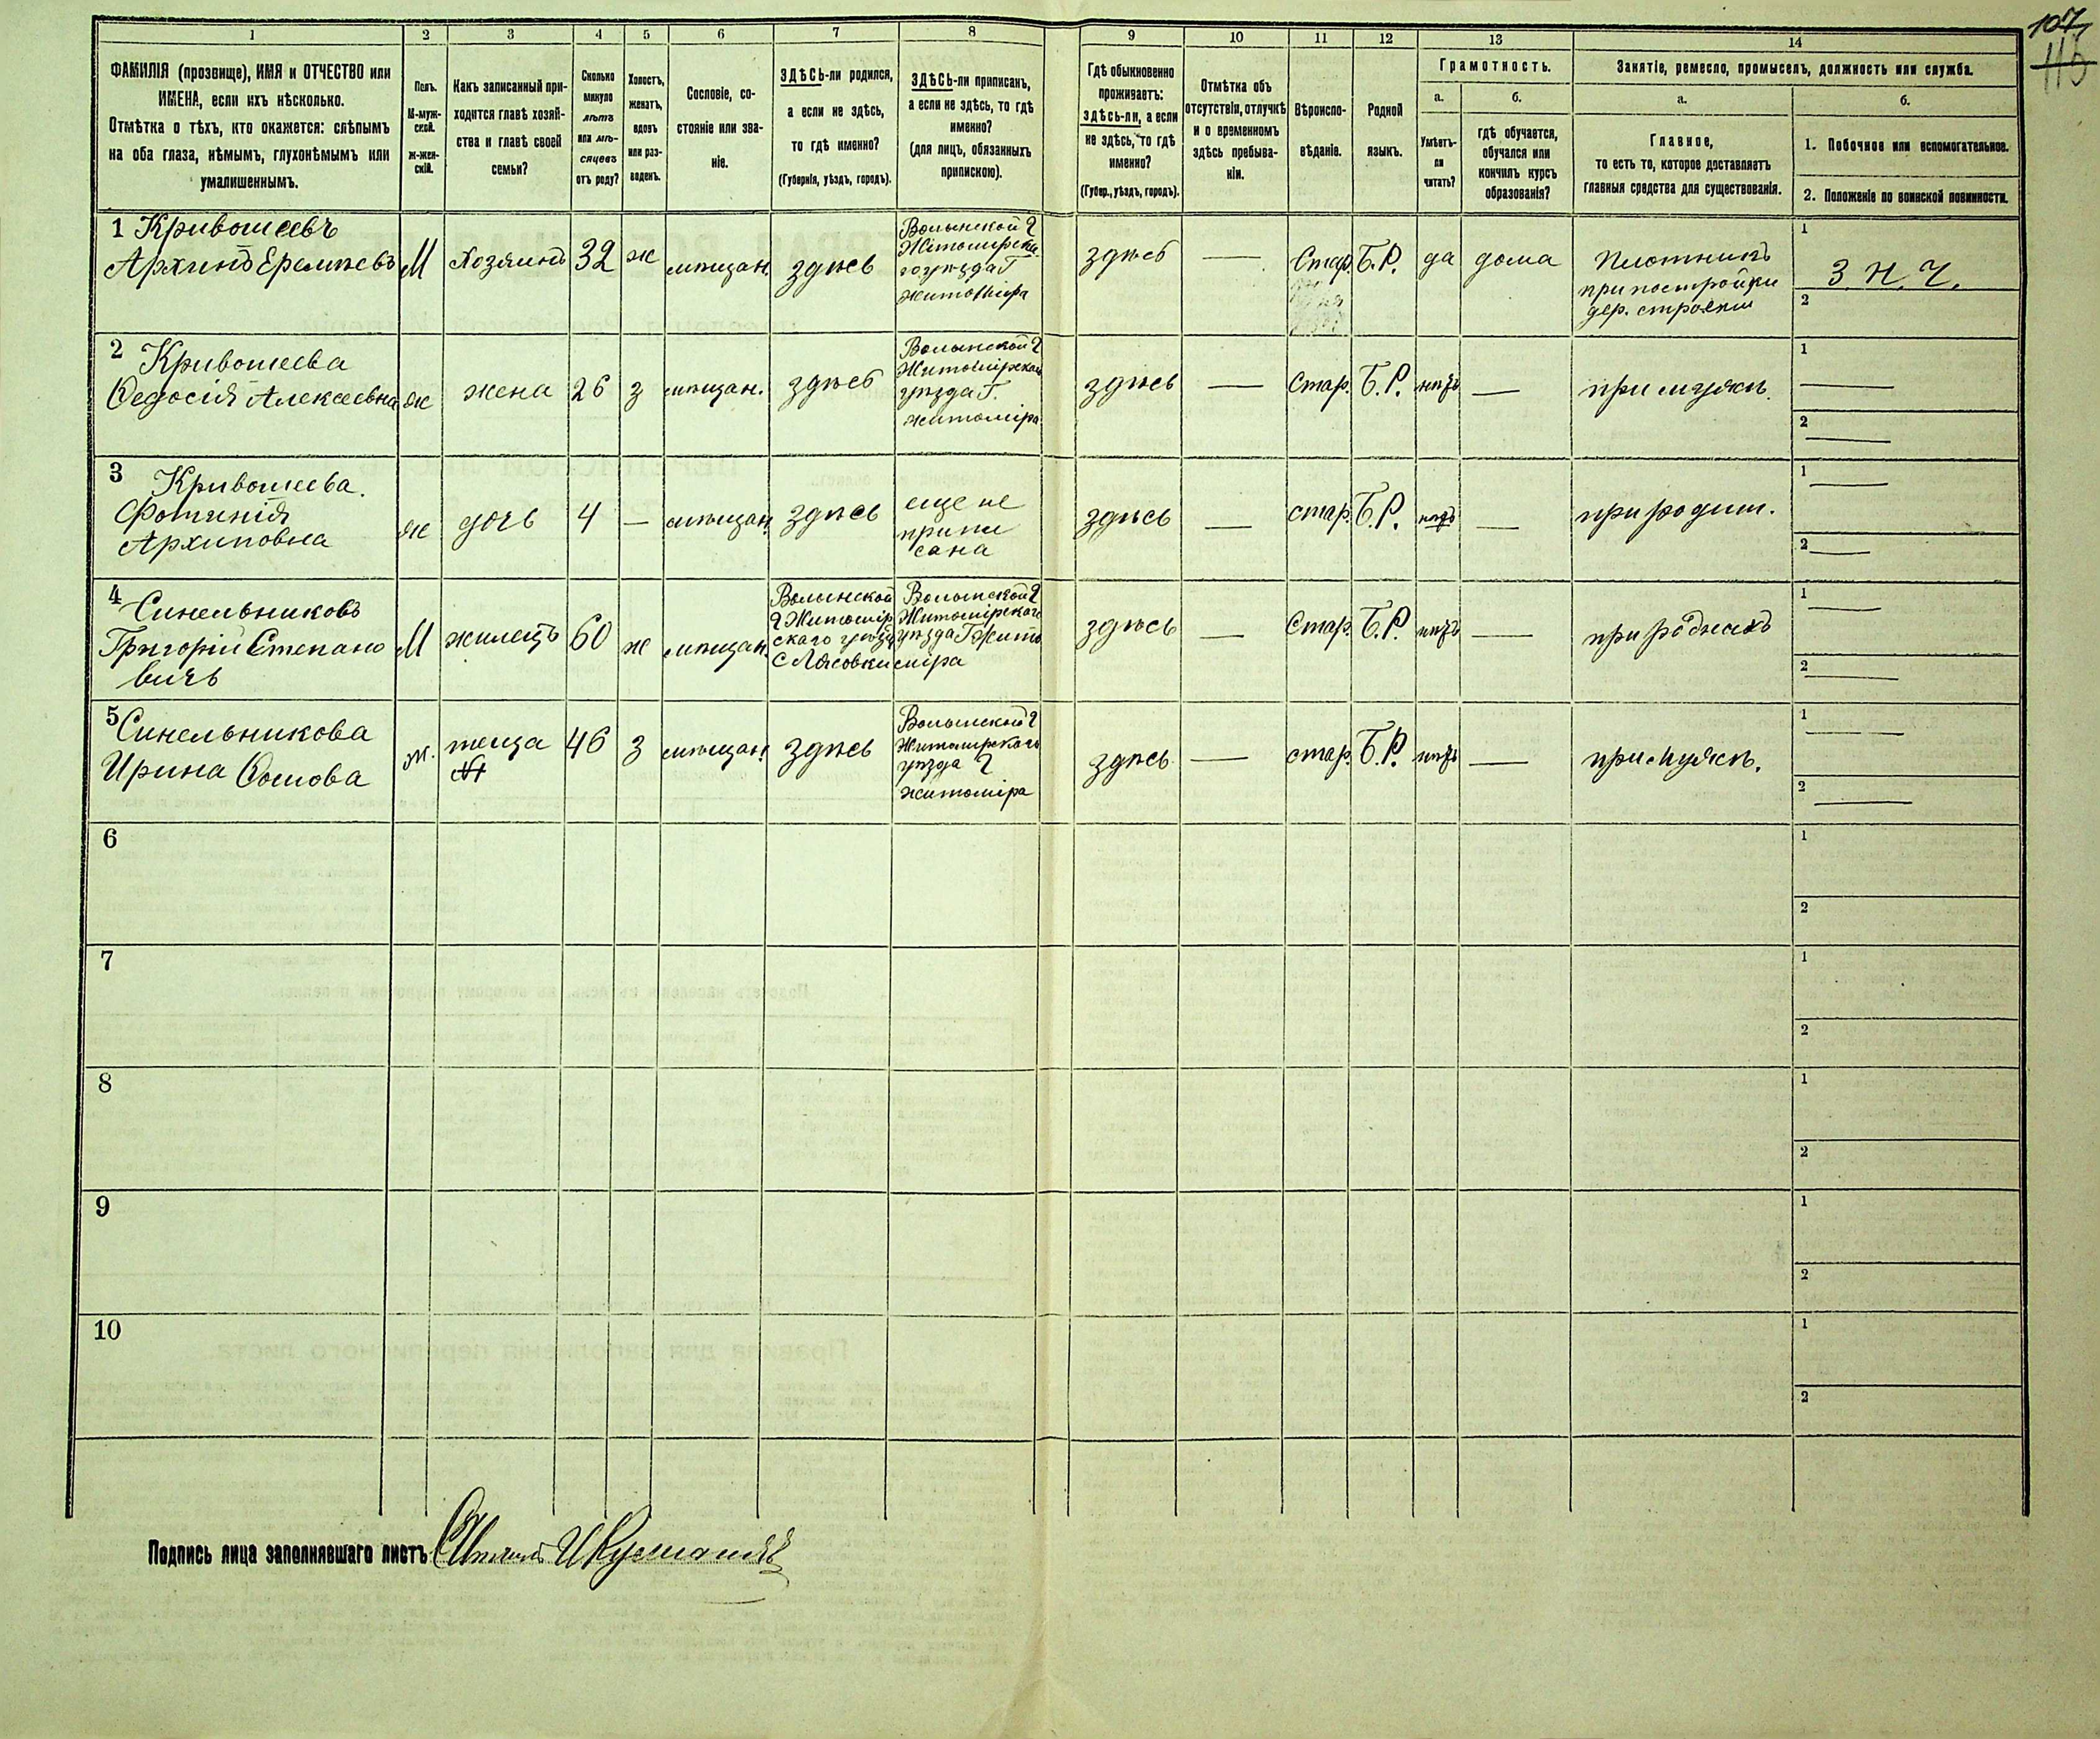 107
116
1 2 3 4 5 6 7 8 9 10 11 12 13 14
ФАМИЛІЯ (прозвище), ИМЯ и ОТЧЕСТВО или
ИМЕНА, если ихъ нѣсколько.
Отмѣтка о тѣхъ, кто окажется: слѣпымъ
на оба глаза, нѣмымъ, глухонѣмымъ или
умалишеннымъ.
Полъ.
М-муж-
ской.
ж-жен-
скій.
Какъ записанный при-
ходится главѣ хозяй-
ства и главѣ своей
семьи?
Сколько
минуло
лѣтъ
или мѣ-
сяцевъ
отъ роду?
Холостъ,
женатъ,
вдовъ
или раз-
веденъ.
Сословіе, со-
стояніе или зва-
ніе.
ЗДѢСЬ-ли родился,
а если не здѣсь,
то гдѣ именно?
(Губернія, уѣздъ, городъ).
ЗДѢСЬ-ли приписанъ,
а если не здѣсь, то гдѣ
именно?
(для лицъ, обязанныхъ
припискою).
Гдѣ обыкновенно
проживаетъ:
здѣсь-ли, а если
не здѣсь, то гдѣ
именно?
(Губер., уѣздъ, городъ).
Отмѣтка объ
отсутствіи, отлучкѣ
и о временномъ
здѣсь пребыва-
ніи.
Вѣроиспо-
вѣданіе.
Родной
языкъ.
Грамотность.
а.
Умѣетъ-
ли
читать?
б.
гдѣ обучается,
обучался или
кончилъ курсъ
образованія?
Занятіе, ремесло, промыселъ, должность или служба.
а.
Главное,
то есть то, которое доставляетъ
главныя средства для существованія.
б.
1. Побочное или вспомогательное.
2. Положеніе по воинской повинности.
1 Кривошеевъ
Архипъ Еремѣевъ
М
Хозяинъ
32
ж
мѣщан.
здѣсь
Волынской г
Житомірска
го уѣзда Г
житоміра
здѣсь
—
Стар.
Б.Р.
да
дома
Плотникъ
при постройки
дер. строеній
1
З. Н. Ч.
2
2 Кривошеева
Ѳедосія Алексеевна
ж
жена
26
з
мѣщан.
здѣсь
Волынской г
Житомірской
уѣзда Г.
житоміра
здѣсь
—
Стар.
Б.Р.
нѣтъ
—
при мужѣ.
1
—
2
—
3 Кривошеева.
Фотинія
Архиповна
ж
дочь
4
—
мѣщан.
здѣсь
еще не
припи
сана
здѣсь
—
стар.
Б.Р.
нѣтъ
—
при родит.
1
—
2
—
4 Синельниковъ
Григорій Степано
вичъ
М
жилецъ
60
ж
мѣщан.
Волынской
г Житомір
скаго уѣзд
с
Волынской г
Житомірскаго
уѣзда Г Жито
міра
здѣсь
—
Стар.
Б.Р.
нѣтъ
—
при роднахъ
1
—
2
—
5 Синельникова
Ирина
ж.
теща
46
з
мѣщан.
здѣсь
Волынской г
Житомірскаго
уѣзда г
житоміра
здѣсь
—
стар.
Б.Р.
нѣтъ
—
при мужѣ.
1
—
2
—
6
1
2
7
1
2
8
1
2
9
1
2
10
1
2
Подпись лица заполнявшаго листъ